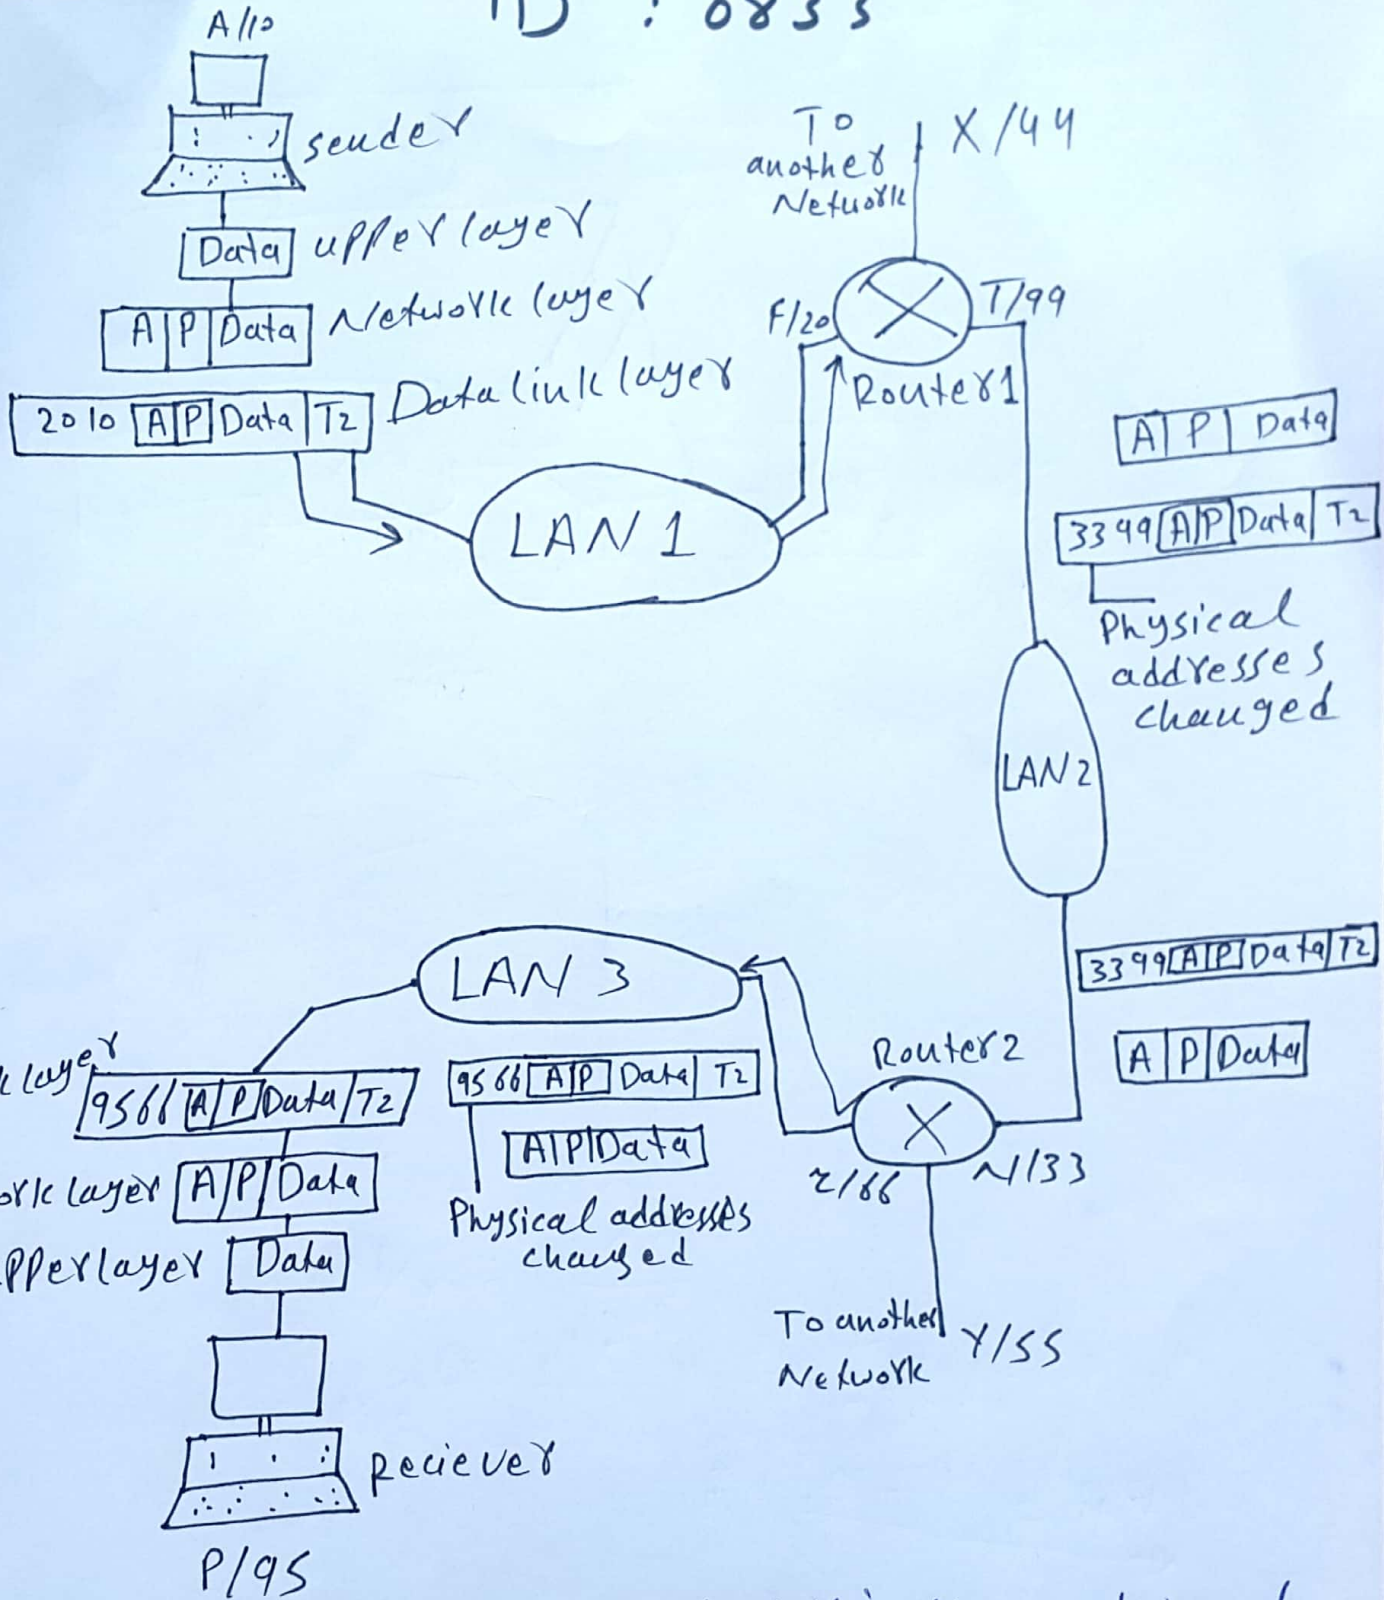 ID : 0855
A/10
sender
Data upper layer
A P Data Network layer
2010 A P Data T2 Data link layer
LAN 1
To
another
Network
X/44
F/20
T/99
Router1
A P Data
3399 A P Data T2
Physical
addresses
changed
LAN 2
3399 A P Data T2
A P Data
Router2
N/33
Z/66
To another
Network
Y/55
LAN 3
9566 A P Data T2
A P Data
Physical addresses
changed
k layer
9566 A P Data T2
ork layer A P Data
pper layer Data
Reciever
P/95